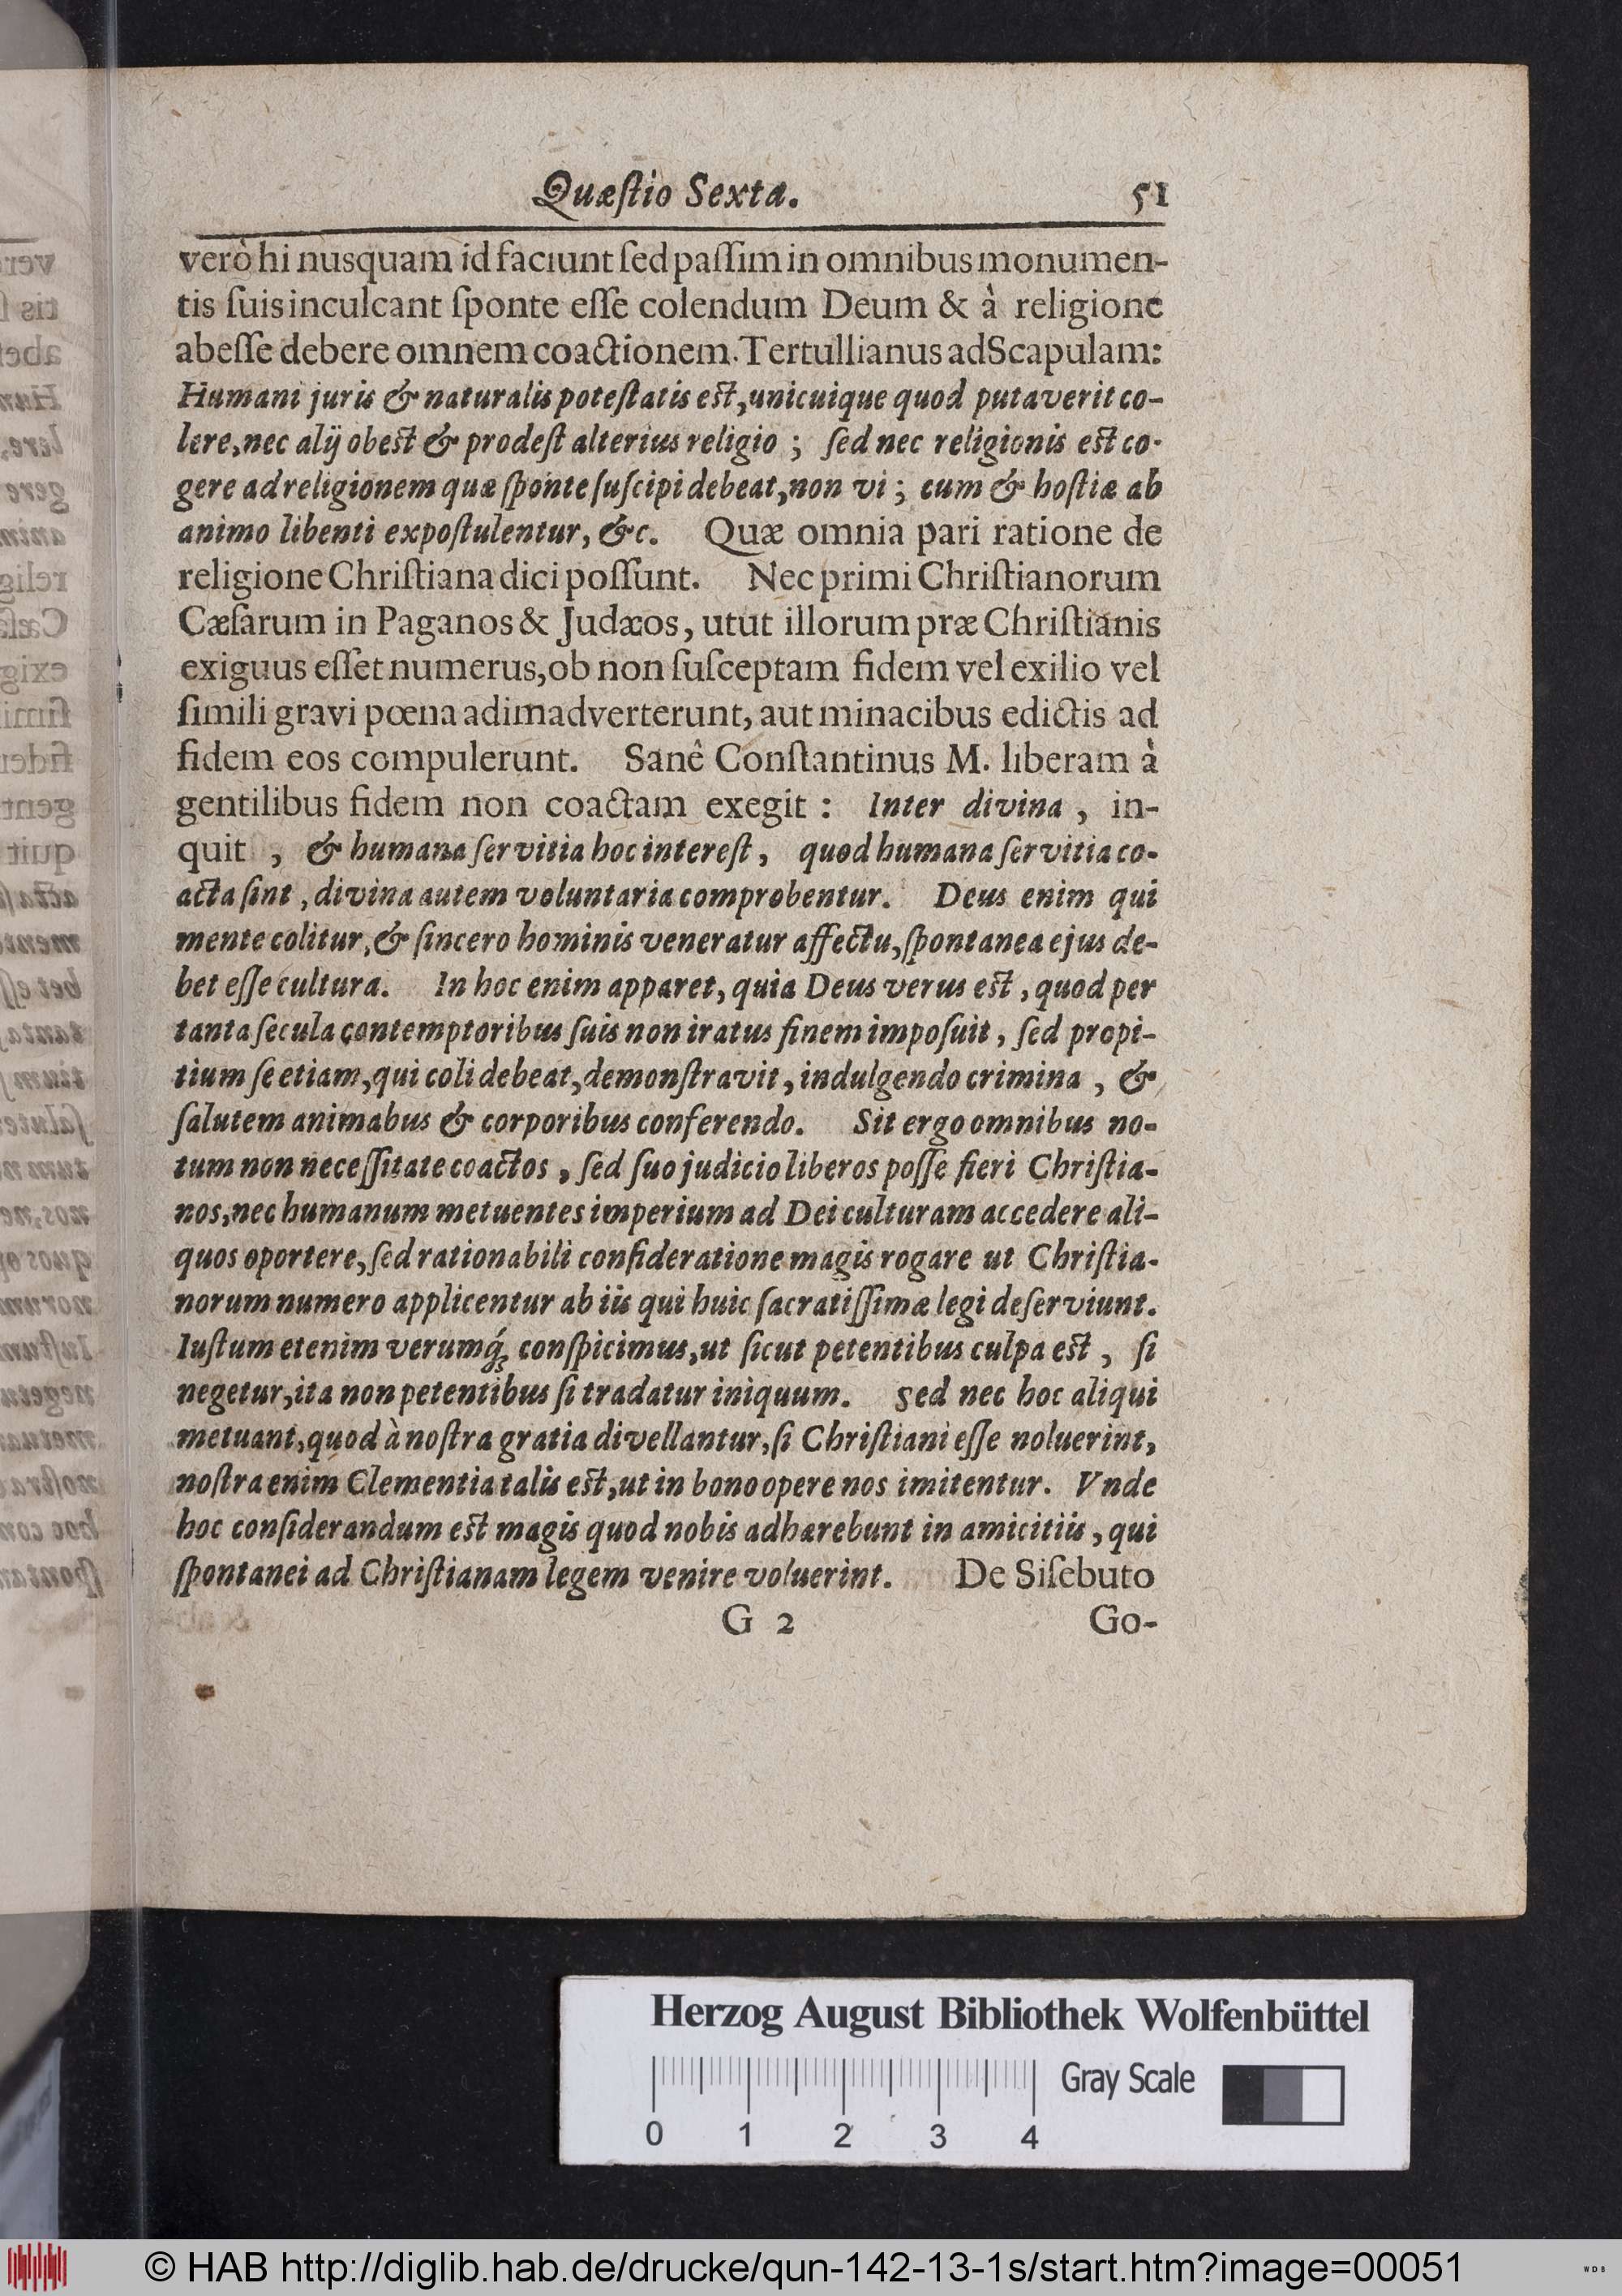 Quæſtio Sexta. 51
verò hi nusquam id faciunt ſed paſſim in omnibus monumen-
tis ſuis inculcant ſponte eſſe colendum Deum & à religione
abeſſe debere omnem coactionem. Tertullianus ad Scapulam:
Humani juris & naturalis poteſtatis eſt, unicuique quod putaverit co-
lere, nec alij obeſt & prodeſt alterius religio ; ſed nec religionis eſt co-
gere ad religionem quæ ſponte ſuſcipi debeat, non vi ; cum & hoſtiæ ab
animo libenti expoſtulentur, &c. Quæ omnia pari ratione de
religione Chriſtiana dici poſſunt. Nec primi Chriſtianorum
Cæſarum in Paganos & Judæos, utut illorum præ Chriſtianis
exiguus eſſet numerus, ob non ſuſceptam fidem vel exilio vel
ſimili gravi pœna adimadverterunt, aut minacibus edictis ad
fidem eos compulerunt. Sanê Conſtantinus M. liberam à
gentilibus fidem non coactam exegit : Inter divina , in-
quit , & humana ſervitia hoc intereſt, quod humana ſervitia co-
acta ſint , divina autem voluntaria comprobentur. Deus enim qui
mente colitur, & ſincero hominis veneratur affectu, ſpontanea ejus de-
bet eſſe cultura. In hoc enim apparet, quia Deus verus eſt , quod per
tanta ſecula contemptoribus ſuis non iratus finem impoſuit , ſed propi-
tium ſe etiam, qui coli debeat, demonſtravit , indulgendo crimina , &
ſalutem animabus & corporibus conferendo. Sit ergo omnibus no-
tum non neceſſitate coactos , ſed ſuo judicio liberos poſſe fieri Chriſtia-
nos, nec humanum metuentes imperium ad Dei culturam accedere ali-
quos oportere, ſed rationabili conſideratione magis rogare ut Chriſtia-
norum numero applicentur ab iis qui huic ſacratiſſimæ legi deſerviunt.
Iuſtum etenim verumq́; conſpicimus, ut ſicut petentibus culpa eſt , ſi
negetur, ita non petentibus ſi tradatur iniquum. Sed nec hoc aliqui
metuant, quod à noſtra gratia divellantur, ſi Chriſtiani eſſe noluerint,
noſtra enim Clementia talis eſt, ut in bono opere nos imitentur. Vnde
hoc conſiderandum eſt magis quod nobis adhærebunt in amicitiis , qui
ſpontanei ad Chriſtianam legem venire voluerint. De Siſebuto
G 2 Go-
Herzog August Bibliothek Wolfenbüttel
Gray Scale
0 1 2 3 4
© HAB http://diglib.hab.de/drucke/qun-142-13-1s/start.htm?image=00051
WDB